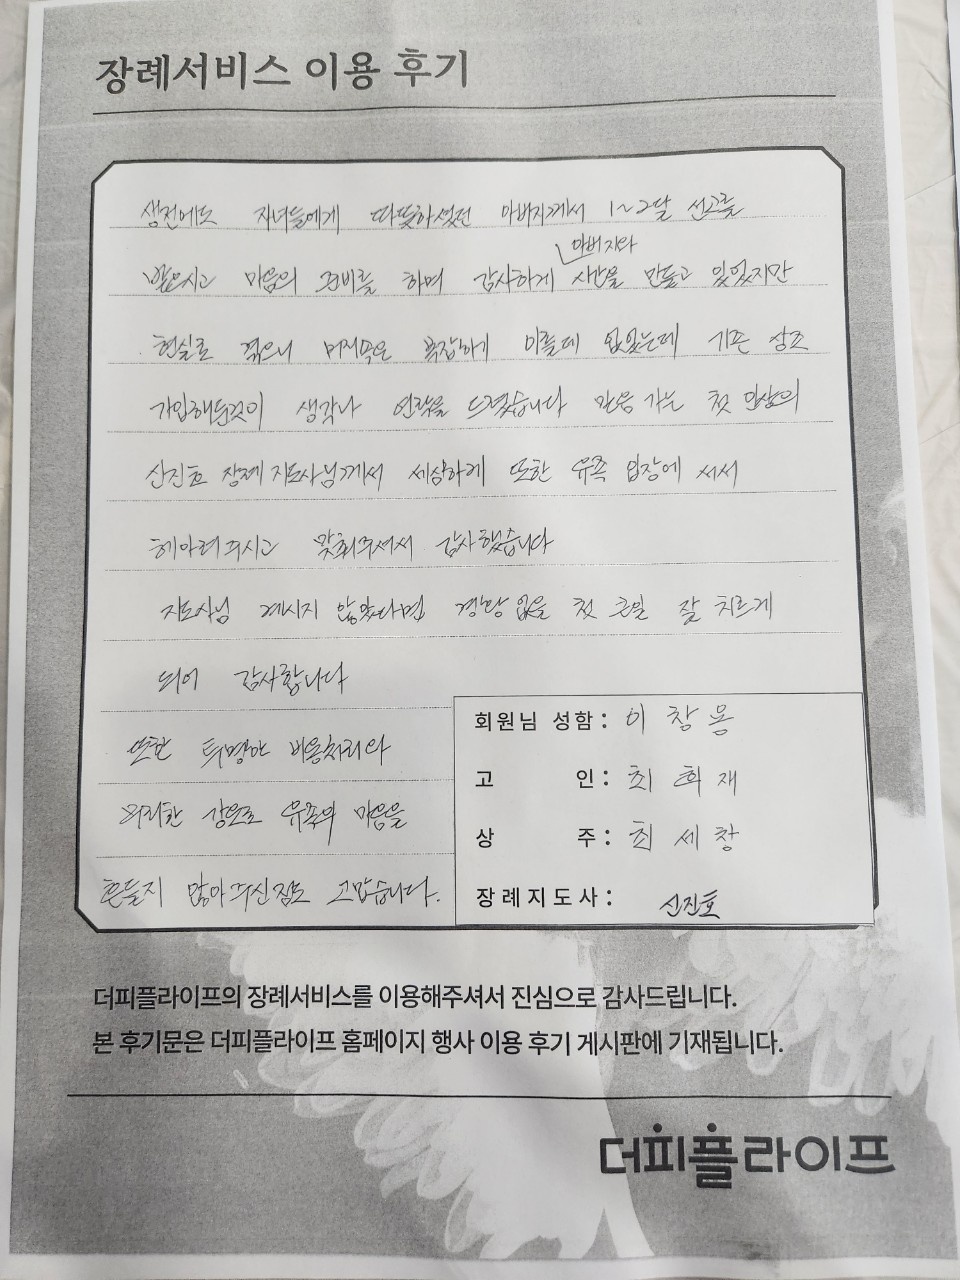 장례서비스 이용 후기
생전에도 자녀들에게 따뜻하셨던 아버지께서 1~2달 선고를
아버지와
받으시고 마음의 준비를 하며 감사하게 시간을 만들고 있었지만
현실로 겪으니 머릿속은 복잡하게 이를데 없었는데 기존 상조
가입해둔것이 생각나 연락을 드렸습니다 믿음 가는 첫 인상의
신진호 장례지도사님께서 세심하게 또한 유족 입장에 서서
헤아려주시고 맞춰주셔서 감사했습니다
지도사님 계시지 않았다면 경황 없을 첫 큰일 잘 치르게
되어 감사합니다
또한 투명한 비용처리와
무리한 강요로 유족의 마음을
흔들지 않아주신점도 고맙습니다.
회원님 성함: 이창용
고 인: 최희재
상 주: 최세창
장례지도사: 신진호
더피플라이프의 장례서비스를 이용해주셔서 진심으로 감사드립니다.
본 후기문은 더피플라이프 홈페이지 행사 이용 후기 게시판에 기재됩니다.
더피플라이프